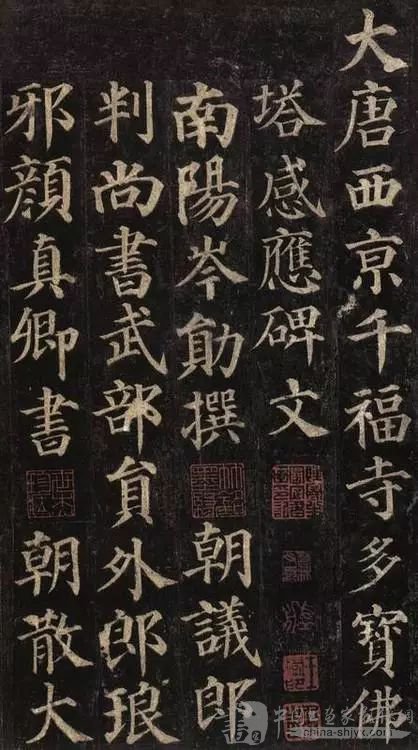 大唐西京千福寺多寶佛
塔感應碑文
南陽岑勛撰 朝議郎
判尚書武部員外郎琅
邪顏真卿書 朝散大
china-shjyx.com